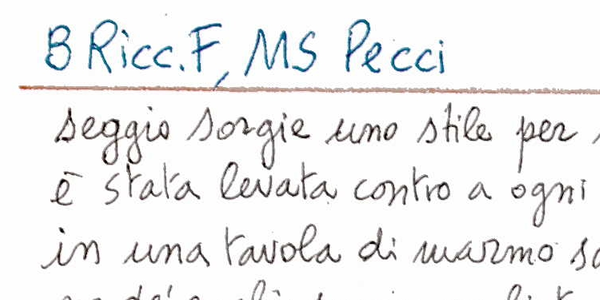 B Ricc. F, MS Pecci
seggio sorgie uno stile per
è stata levata contro a ogni
in una tavola di marmo